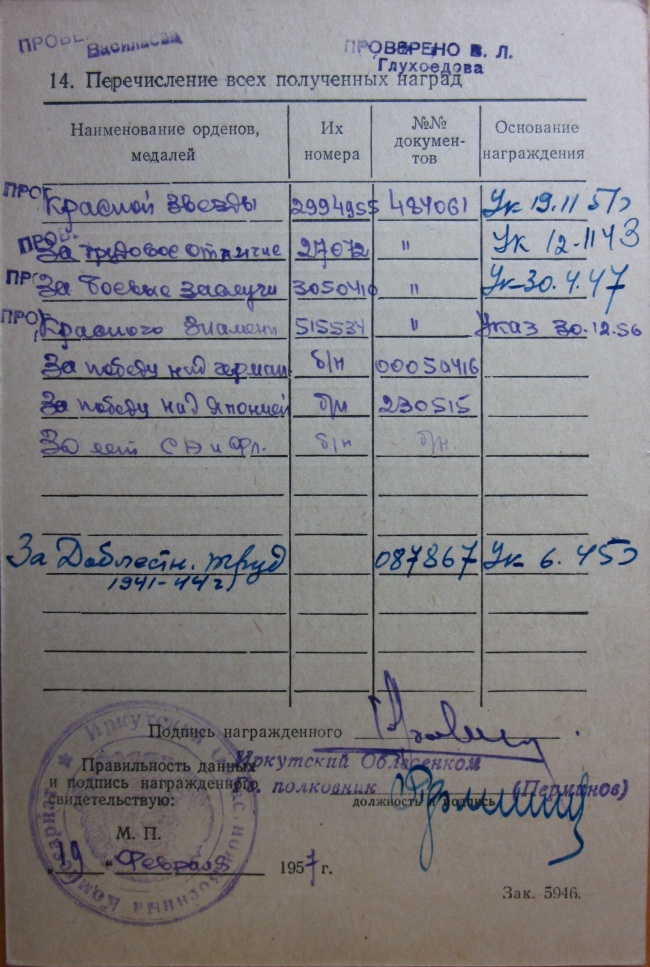 ПРОВЕ
Васильева
ПРОВЕРЕНО В. Л.
Глухоедова
14. Перечисление всех полученных наград
Наименование орденов, медалей
Их номера
№№ докумен-тов
Основание награждения
ПРО Красной Звезды 2994955 484061 Ук 19.11 55
ПРОВ За трудовое отличие 27072 " Ук 12-11 43
ПРО За боевые заслуги 3050410 " Ук 30.4.47
ПРО Красного Знамени 515534 " Указ 30.12.56
За победу над герман б/н 00050416
За победу над Японией б/н 230515
30 лет СА и Фл. б/н б/н.
За Доблестн. труд 087867 Ук 6.45
1941-44 г
Подпись награжденного
Правильность данных
Иркутский Облвоенком
и подпись награжденного
полковник (Першинов)
свидетельствую:
должность и подпись
М. П.
"19" Февраля 1957 г.
Зак. 5946.